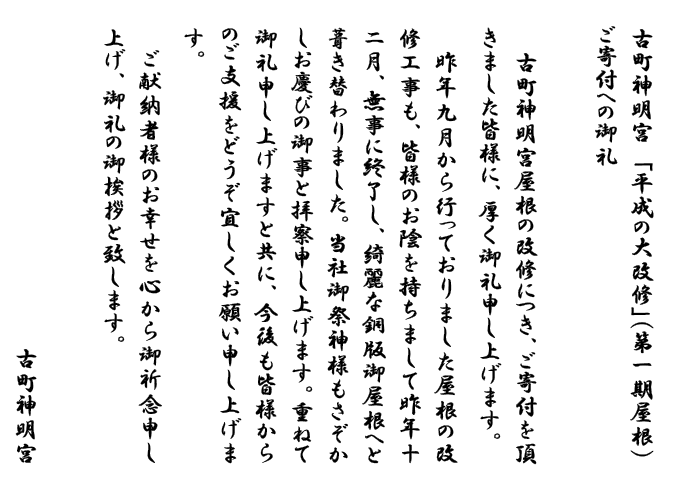 古町神明宮　「平成の大改修」（第一期屋根）
ご寄付への御礼
古町神明宮屋根の改修につき、ご寄付を頂
きました皆様に、厚く御礼申し上げます。
昨年九月から行っておりました屋根の改
修工事も、皆様のお陰を持ちまして昨年十
二月、無事に終了し、綺麗な銅版御屋根へと
葺き替わりました。当社御祭神様もさぞか
しお慶びの御事と拝察申し上げます。重ねて
御礼申し上げますと共に、今後も皆様から
のご支援をどうぞ宜しくお願い申し上げま
す。
ご献納者様のお幸せを心から御祈念申し
上げ、御礼の御挨拶と致します。
古町神明宮